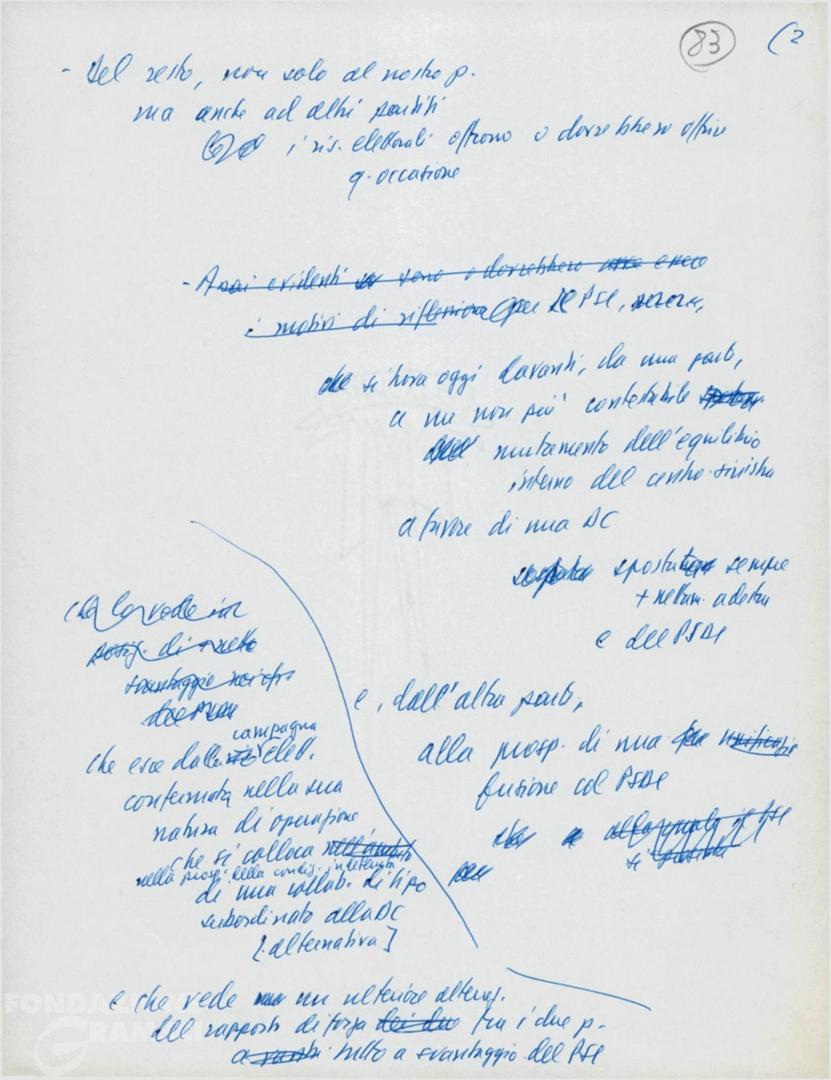 83 (2
- Del resto, non solo al nostro p.
ma anche ad altri partiti
i ris. elettorali offrono o dovrebbero offrire
q. occasione
- Assai evidenti sono o dovrebbero essere
i motivi di riflessione per il PSI,
che si trova oggi davanti, da una parte,
a un non più contestabile
mutamento dell'equilibrio
interno del centro-sinistra
a favore di una DC
spostata sempre
+ nettam. a destra
e del PSDI
e, dall'altra parte,
alla prosp. di una
fusione col PSDI
che
svantaggio
campagna
che esce dalla elett.
confermata nella sua
natura di operazione
che si colloca nell'ambito
nella prosp. della
di una collab. di tipo
subordinato alla DC
[alternativa]
e che vede un ulteriore alteraz.
dei rapporti di forza dei due tra i due p.
tutto a svantaggio del PSI
FONDAZIONE
GRAMSCI